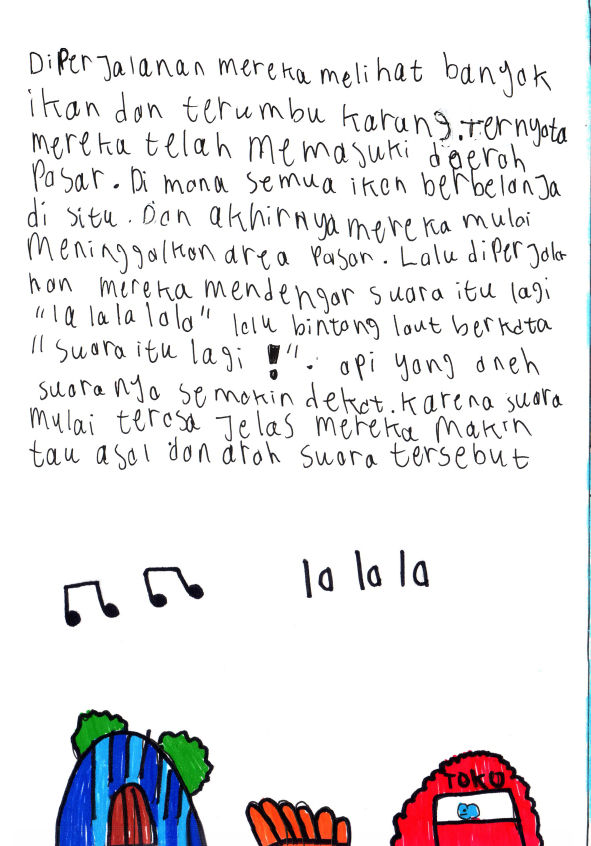 Diperjalanan mereka melihat banyak
ikan dan terumbu karang. Ternyata
mereka telah memasuki daerah
Pasar. Di mana semua ikan berbelanja
di situ. Dan akhirnya mereka mulai
meninggalkan area Pasar. Lalu diperjala-
han mereka mendengar suara itu lagi
"la la la la la" lalu bintang laut berkata
"suara itu lagi !". api yang aneh
suaranya semakin dekat. Karena suara
mulai terasa jelas mereka makin
tau asal dan arah suara tersebut
la la la
TOKO